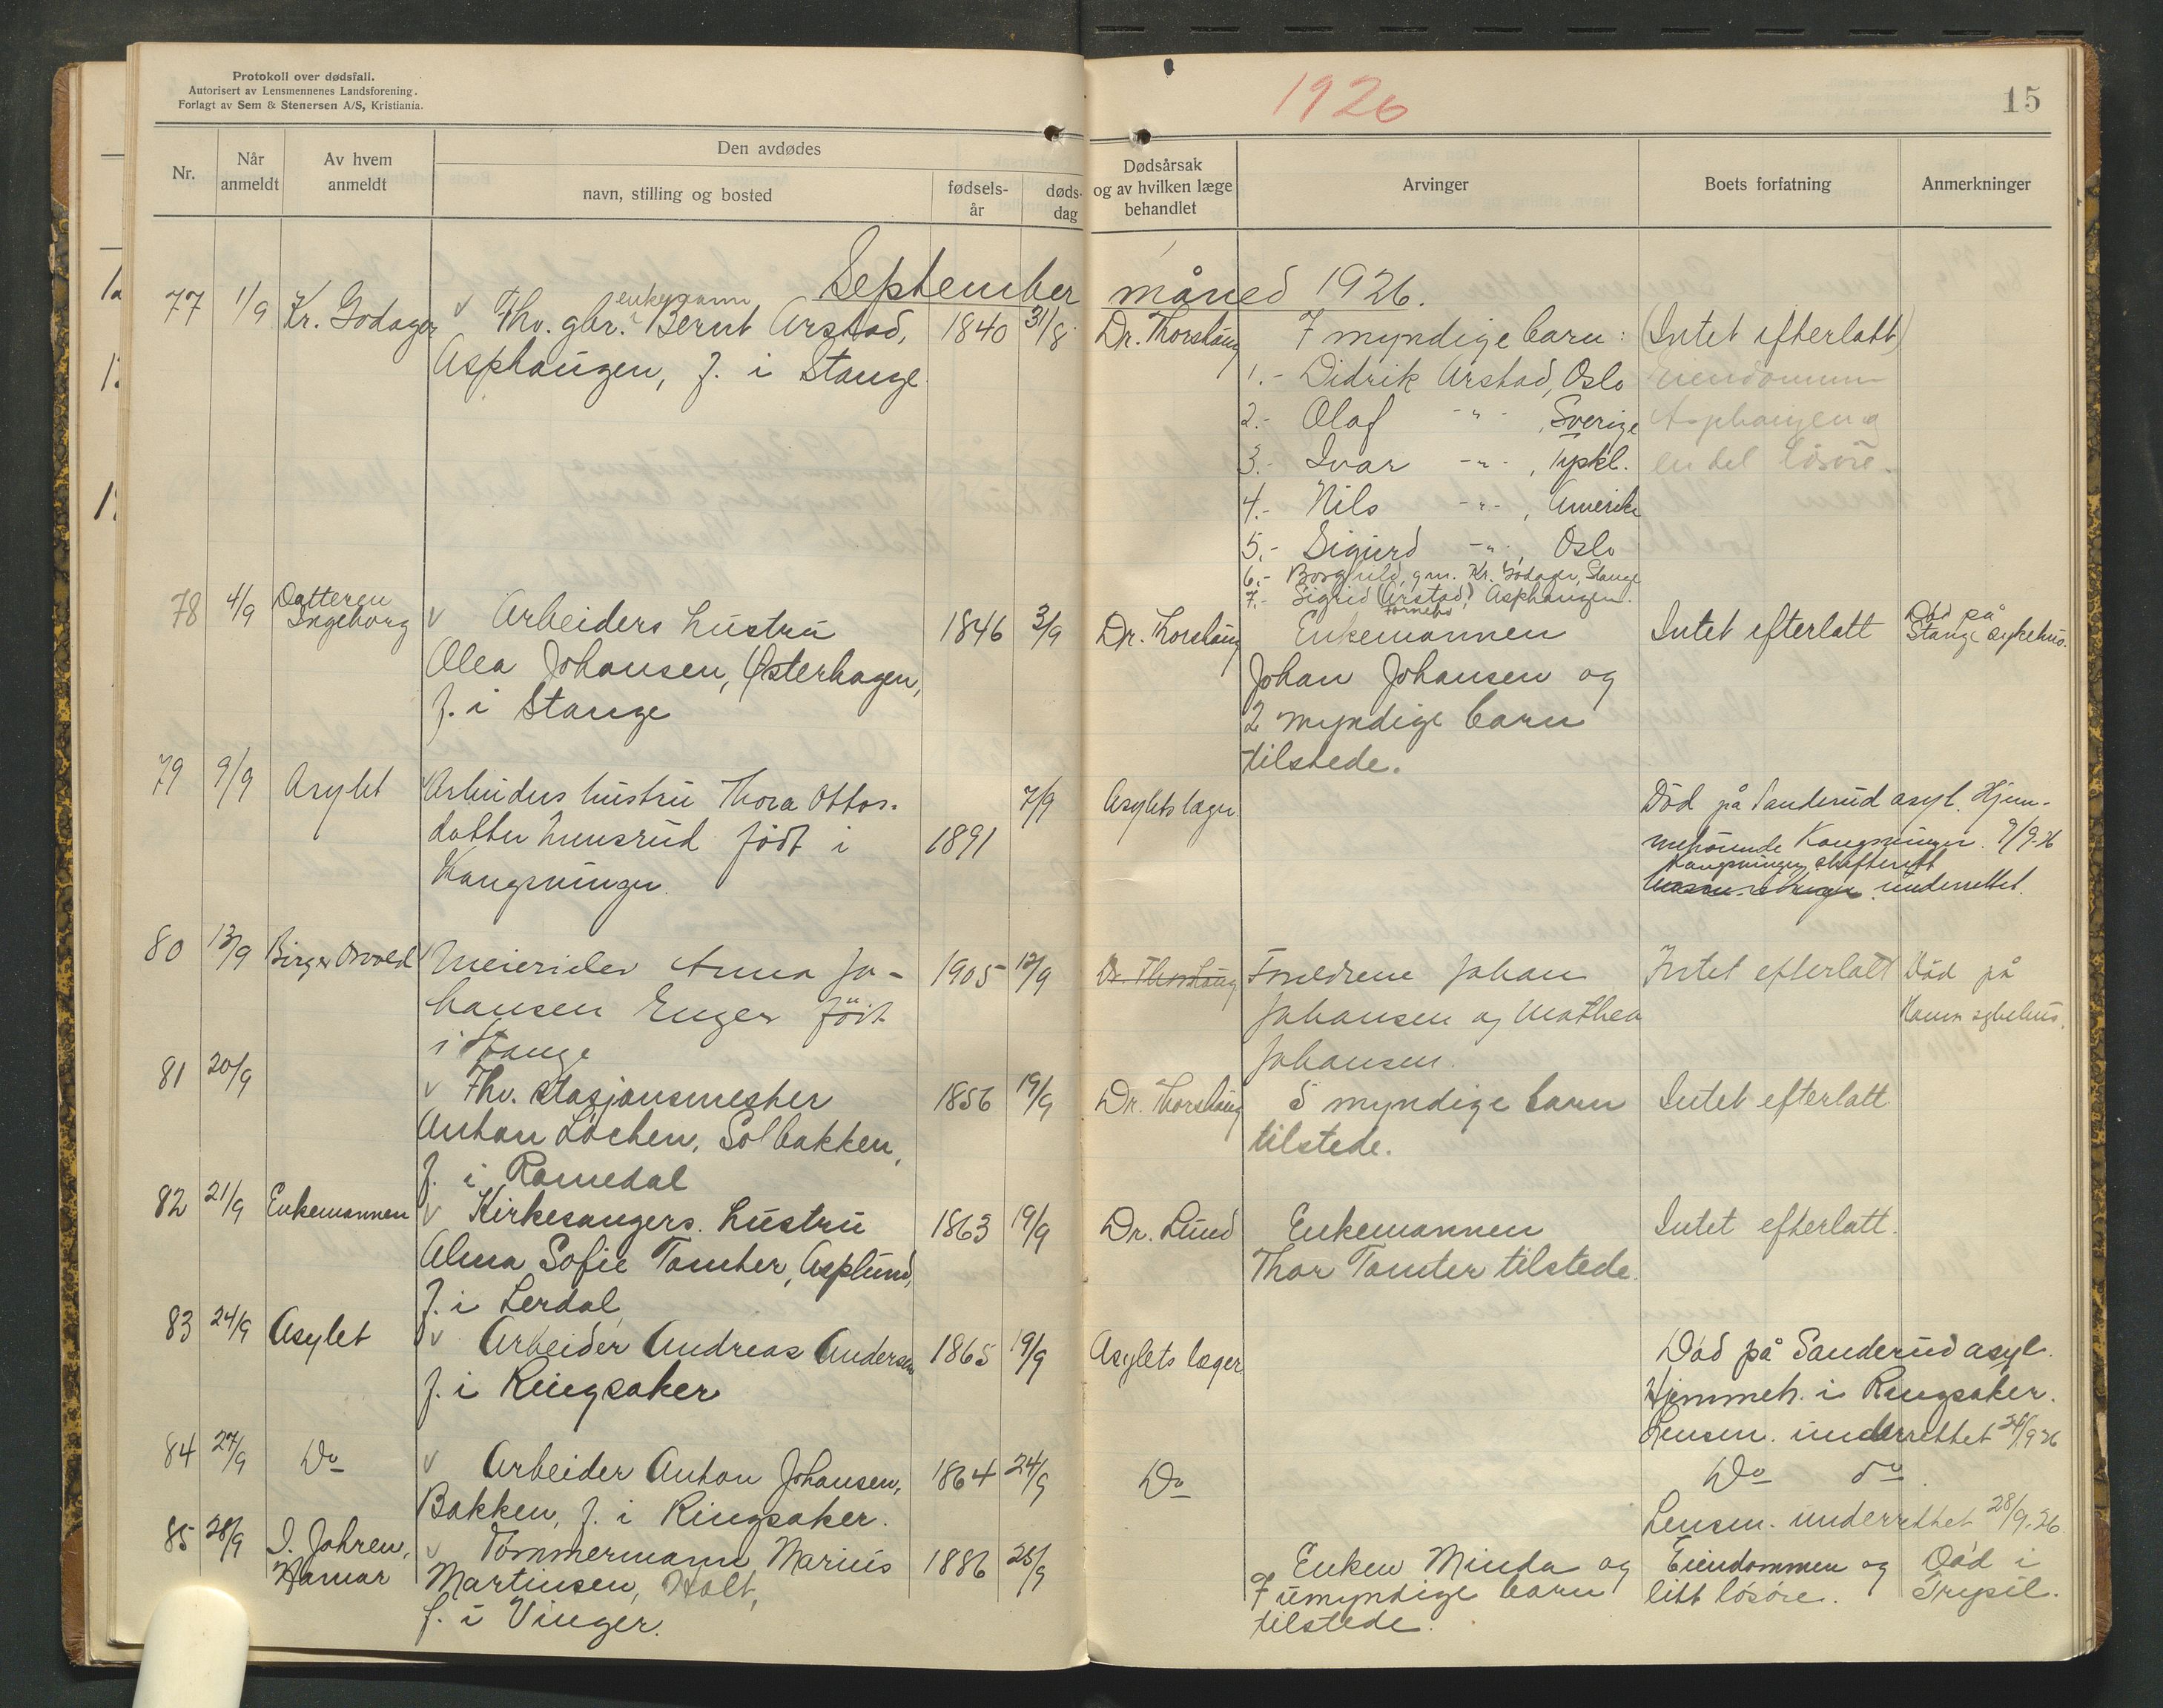 Protokoll over dødsfall.
Autorisert av Lensmennenes Landsforening.
Forlagt av Sem & Stenersen A/S, Kristiania.
1926
15
Nr.
Når anmeldt
Av hvem anmeldt
Den avdødes
navn, stilling og bosted
fødsels-år
døds-dag
Dødsårsak og av hvilken læge behandlet
Arvinger
Boets forfatning
Anmerkninger
September måned 1926.
77 1/9 Kr. Godager v enkemann Fhv. gbr. Bernt Arstad, 1840 31/8 Dr. Thorshaug 7 myndige barn: (Intet efterlatt)
Asphaugen, f. i Stange 1.- Didrik Arstad, Oslo Eiendommen
2.- Olaf -"- , Sverige Asphaugen og
3.- Ivar -"- , Tyskl. en del løsøre.
4.- Nils -"- , Amerika
5.- Sigurd -"- , Oslo
6.- Borghild, gm. Kr. Godager, Stange
7.- Sigrid (Arstad) Asphaugen.
78 4/9 Datteren Ingeborg v Arbeiders hustru 1846 3/9 Dr. Thorshaug Enkemannen Intet efterlatt Död på Stange sykehus.
Olea Johansen, Østerhagen, Johan Johansen og
f. i Stange 2 myndige barn
tilstede.
79 9/9 Asylet v Arbeiders hustru Thora Ottos- 7/9 Asylets læger Död på Sanderud asyl. Hjem-
datter født i 1891 mehörende Kongsvinger. 9/9-26
Kongsvinger. Kongsvinger skifterett
underrettet.
80 13/9 Birger Osvold v Meierielev Anna Jo- 1905 12/9 Dr. Thorshaug Foreldrene Johan Intet efterlatt Död på
hansen Enger født Johansen og Mathea Hamar sykehus.
i Stange Johansen.
81 20/9 v Fhv. stasjonsmester 1856 19/9 Dr. Thorshaug 5 myndige barn Intet efterlatt
Anton Löchen, Solbakken, tilstede.
f. i Romedal
82 21/9 Enkemannen v Kirkesangers hustru 1863 19/9 Dr. Lund Enkemannen Intet efterlatt.
Alma Sofie Tomter, Asplund, Thor Tomter tilstede.
f. i Lerdal
83 24/9 Asylet v Arbeider Andreas Andersen 1865 19/9 Asylets læger Död på Sanderud asyl.
f. i Ringsaker Hjemmeh. i Ringsaker.
Lensm. underrettet 24/9 26
84 27/9 Do v Arbeider Anton Johansen, 1864 24/9 Do Do do
Bakken, f. i Ringsaker. Lensm. underrettet 28/9.26
85 28/9 I. Johren, Hamar v Tömmermann Marius 1886 25/9 Enken Minda og Eiendommen og Död i
Martinsen, Holt, 7 umyndige barn litt lösöre. Trysil.
f. i Vinger. tilstede.